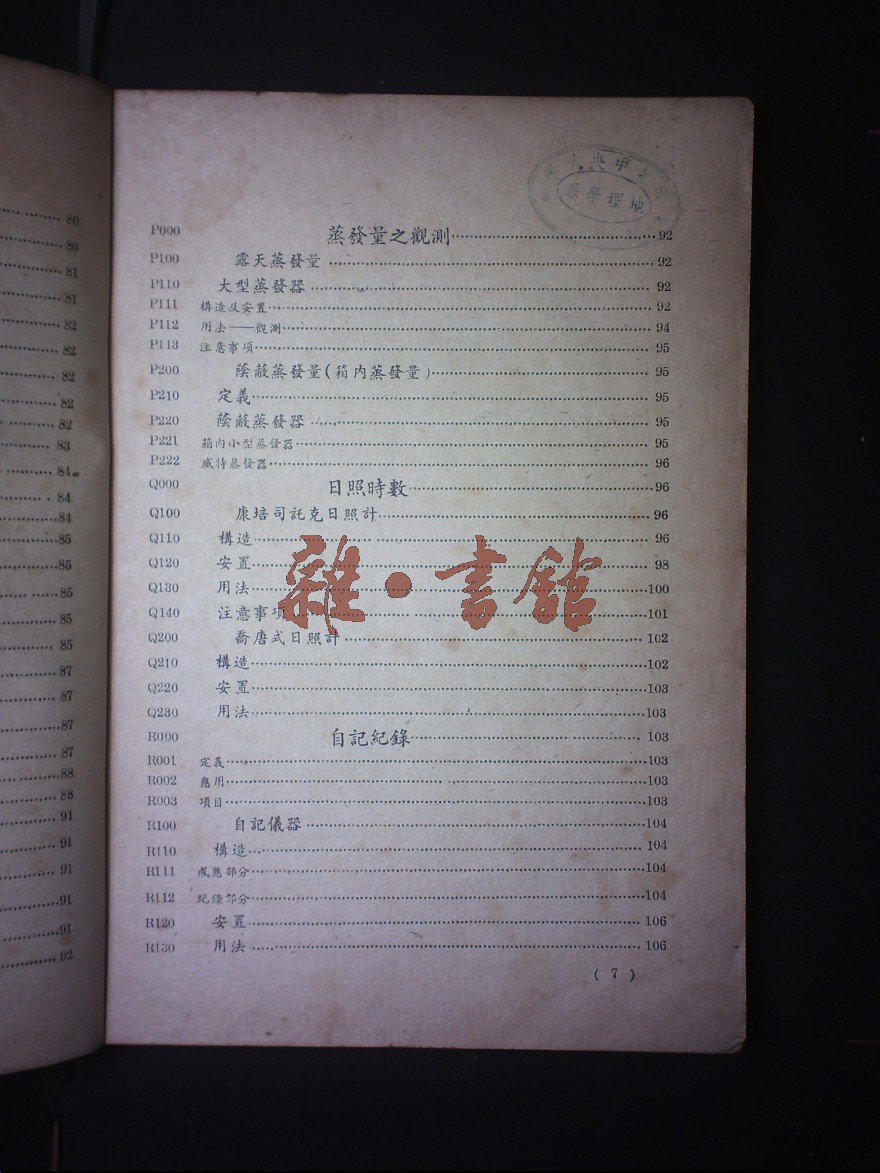 80
80
81
81
82
82
82
82
82
83
84
84
84
85
85
85
85
85
87
87
87
87
88
88
91
91
91
91
91
92
地理學系
P000 蒸發量之觀測 92
P100 露天蒸發量 92
P110 大型蒸發器 92
P111 構造及安置 92
P112 用法——觀測 94
P113 注意事項 95
P200 蔭蔽蒸發量(箱內蒸發量) 95
P210 定義 95
P220 蔭蔽蒸發器 95
P221 箱內小型蒸發器 95
P222 威特蒸發器 96
Q000 日照時數 96
Q100 康培司託克日照計 96
Q110 構造 96
Q120 安置 98
Q130 用法 100
Q140 注意事項 101
Q200 喬唐式日照計 102
Q210 構造 102
Q220 安置 103
Q230 用法 103
R000 自記紀錄 103
R001 定義 103
R002 應用 103
R003 項目 103
R100 自記儀器 104
R110 構造 104
R111 感應部分 104
R112 紀錄部分 104
R120 安置 106
R130 用法 106
(7)
雜·書館